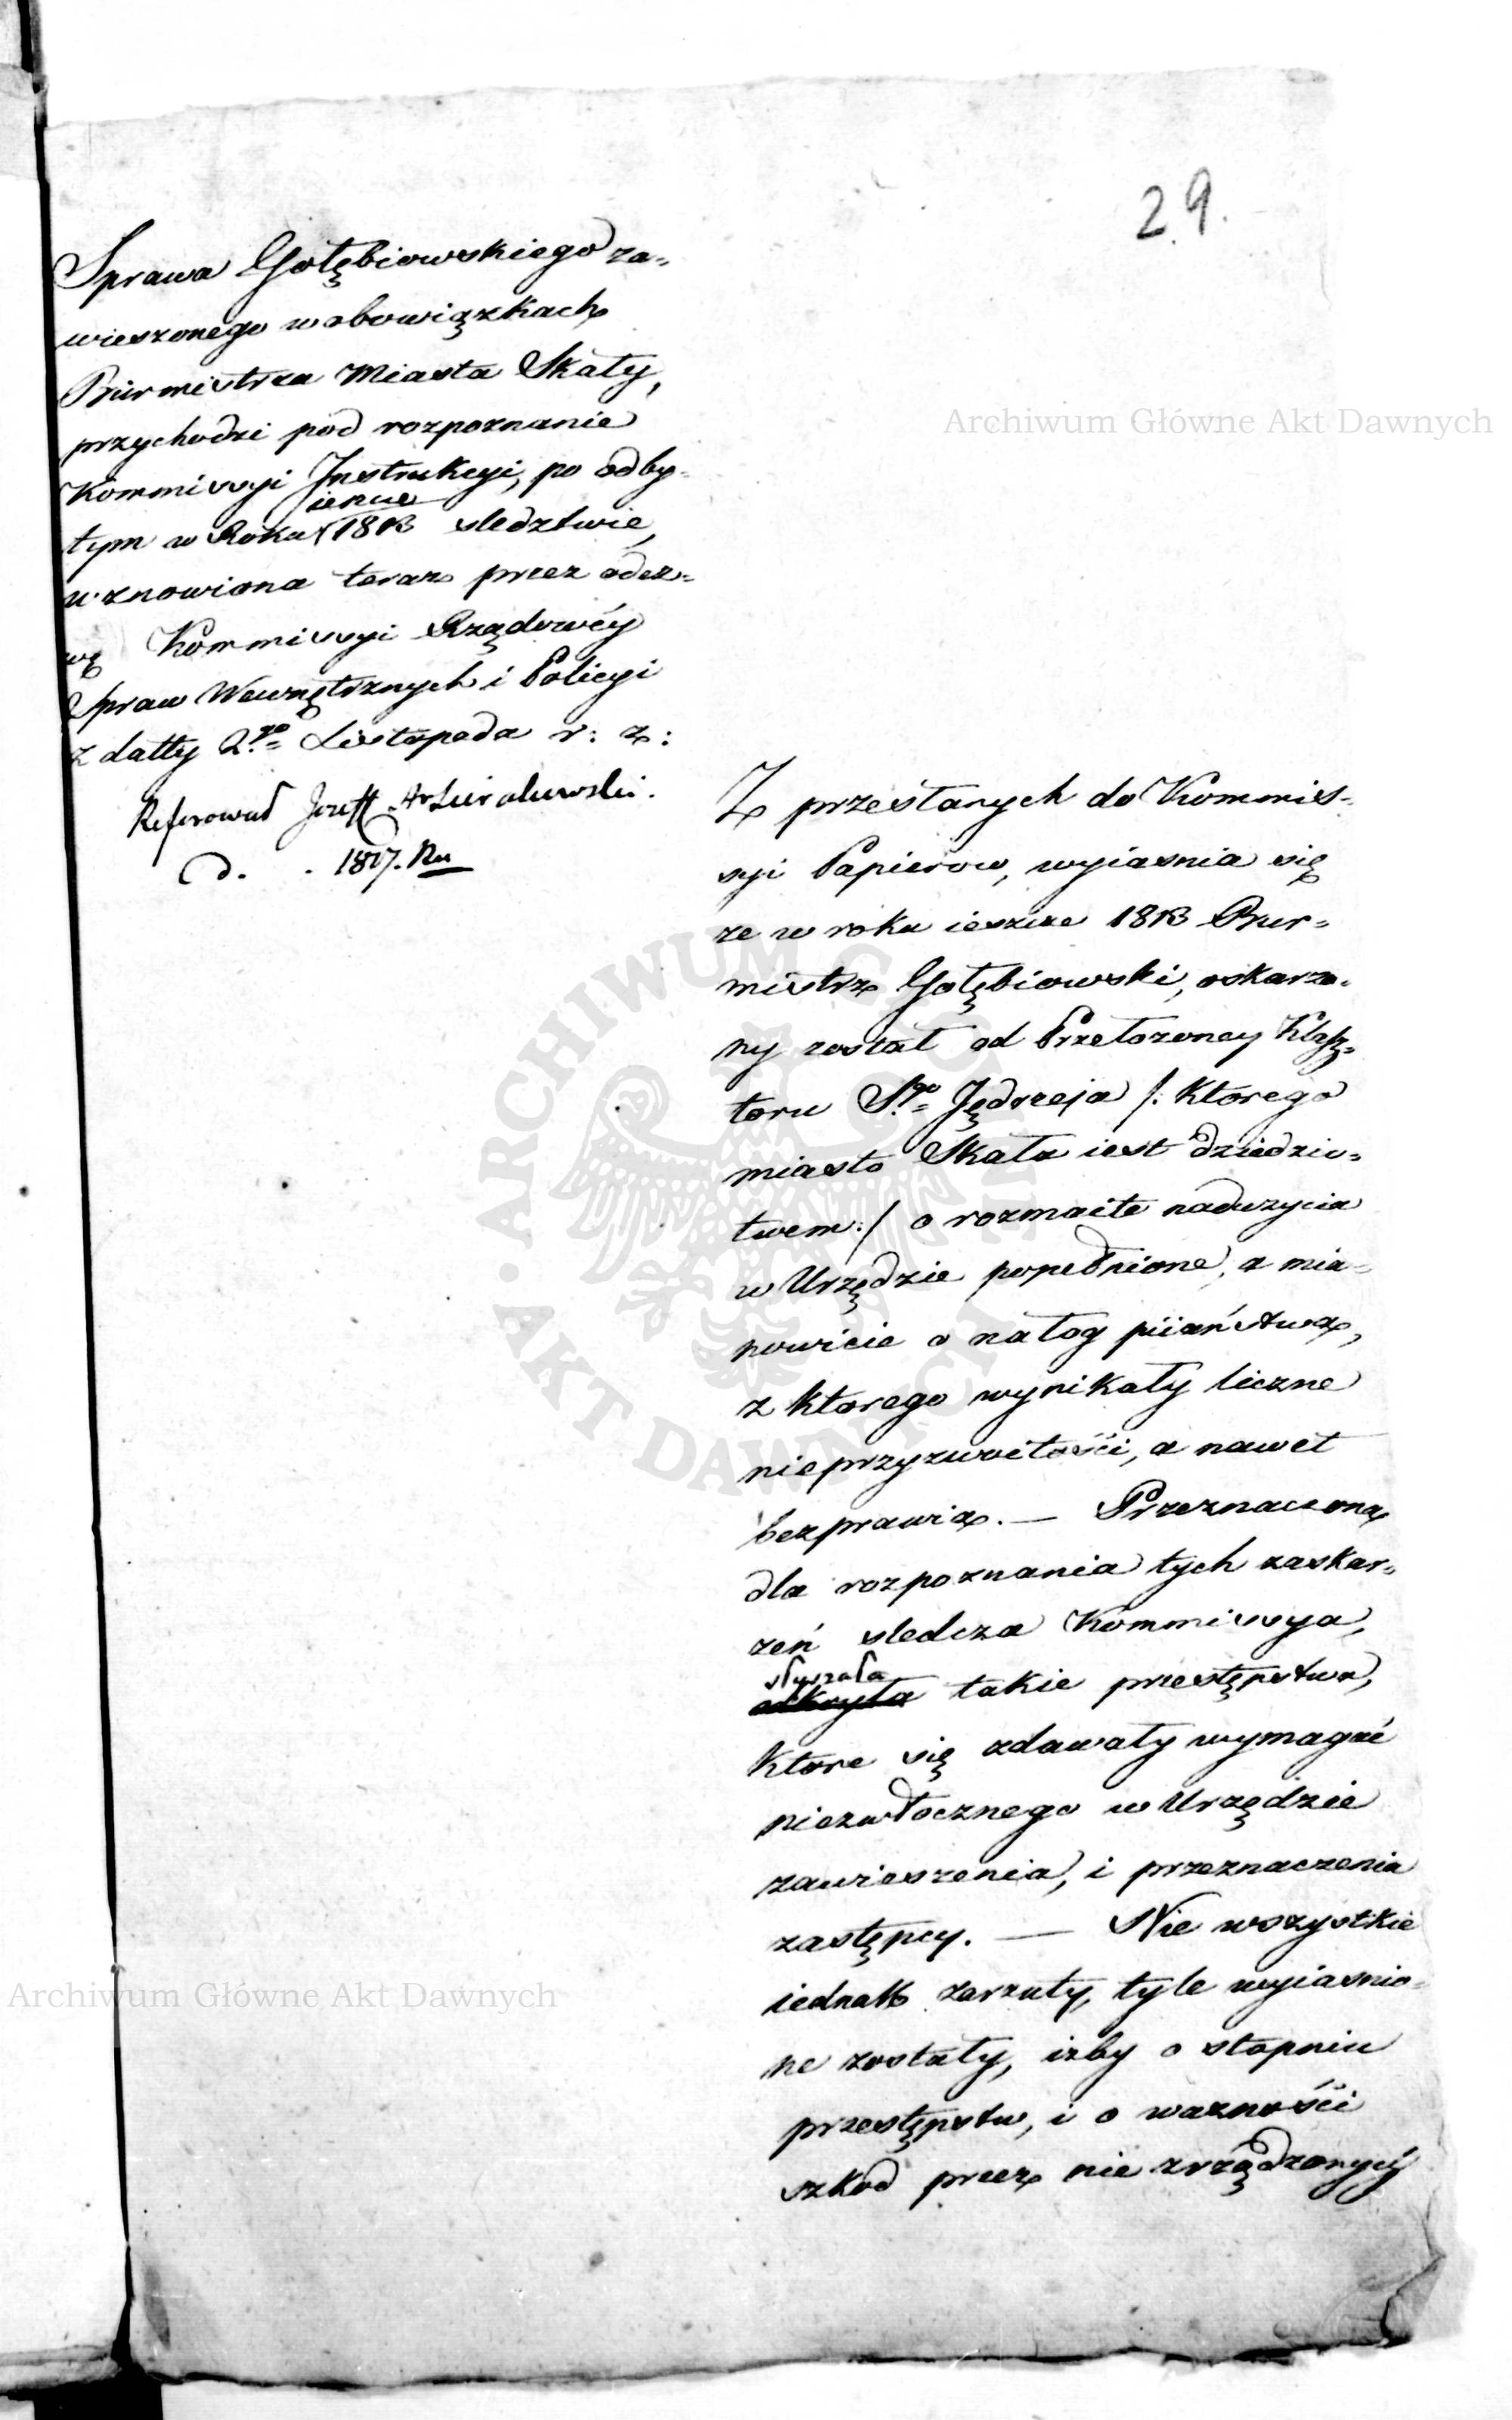 29.
Sprawa Gołębiowskiego za=
wieszonego w obowiązkach
Burmistrza Miasta Skały,
przychodzi pod rozpoznanie
Kommissyi Instrukcyi, po odby=
tym w Roku ieszcze 1813 sledztwie,
wznowiona teraz przez odez=
wę Kommissyi Rządowéy
Spraw Wewnętrznych i Policyi
z datty 2.go Listopada r: z:
Referował Jozeff
d. . 1817. Ru
Z przesłanych do Kommis=
syi Papierow, wyiasnia się
ze w roku ieszcze 1813 Bur=
mistrz Gołębiowski, oskarzo=
ny został od Przełozoney Klasz=
toru S.go Jędrzeja /: ktorego
miasto Skała iest dziedzic=
twem :/ o rozmaite naduzycia
w Urzędzie popełnione, a mia=
nowicie o nałog piiaństwa,
z ktorego wynikały liczne
nieprzyzwoitości, a nawet
bezprawia. — Przeznaczona
dla rozpoznania tych zaskar=
zeń sledcza Kommissya,
słyszała
odkryła takie przestępstwa,
ktore się zdawały wymagać
niezwłocznego w Urzędzie
zawieszenia, i przeznaczenia
zastępcy. — Nie wszystkie
iednak zarzuty, tyle wyiasnio=
ne zostały, izby o stopniu
przestępstw, i o wazności
szkod przez nie zrządzonych
Archiwum Główne Akt Dawnych
Archiwum Główne Akt Dawnych
ARCHIWUM GŁÓWNE · AKT DAWNYCH ·